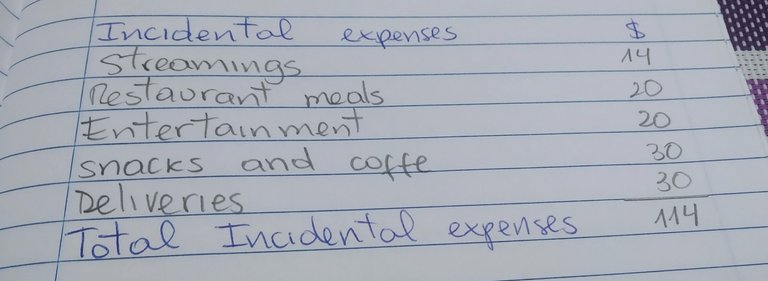 Incidental expenses $
Streamings 14
Restaurant meals 20
Entertainment 20
snacks and coffe 30
Deliveries 30
Total Incidental expenses 114